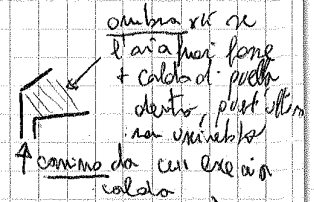 ombra si se
l'aria fuori fosse
+ calda di quella
dentro, quest'ultima
non uscirebbe
camino da cui esce aria
calda